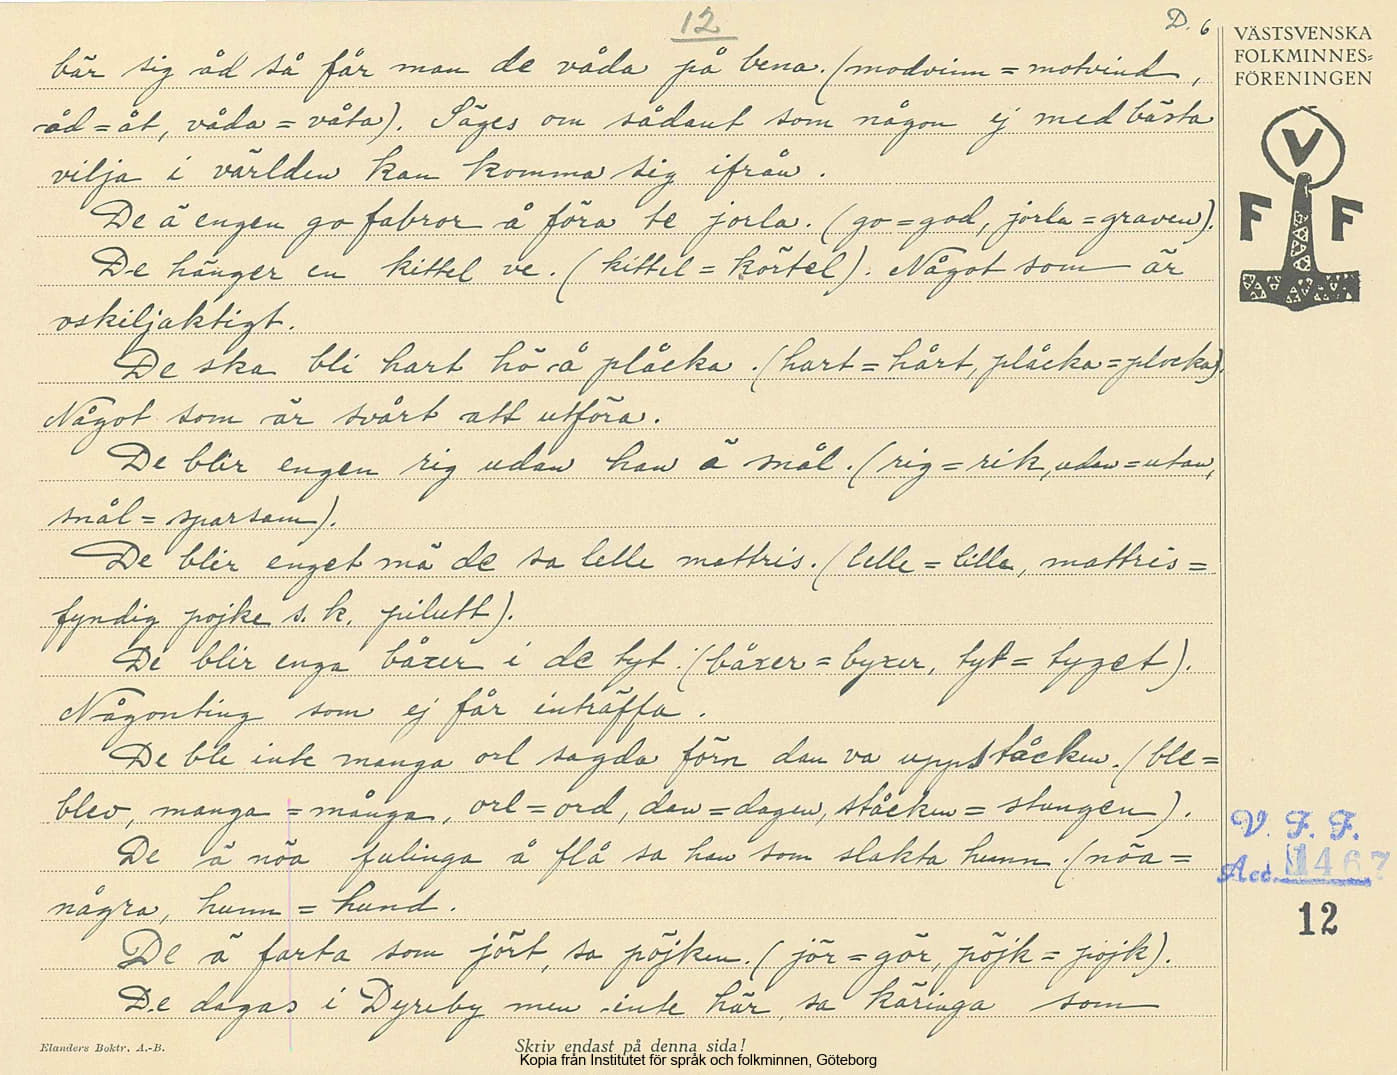 12
D. 6
VÄSTSVENSKA
FOLKMINNES-
FÖRENINGEN
V
F F
bär sig åd så får man de våda på bena. (modvinn = motvind,
åd = åt, våda = våta). Säges om sådant som någon ej med bästa
vilja i världen kan komma sig ifrån.
De ä engen go fabror å föra te jorla. (go = god, jorla = graven).
De hänger en kittel ve. (kittel = körtel). Något som är
oskiljaktigt.
De ska bli hart hö å plåcka. (hart = hårt, plåcka = plocka).
Något som är svårt att utföra.
De blir engen rig udan han ä snål. (rig = rik, udan = utan,
snål = sparsam).
De blir enget må de sa lelle mattris. (lelle = lilla, mattris =
fyndig pojke s. k. pilutt).
De blir enga båxer i de tyt. (båxer = byxer, tyt = tyget).
Någonting som ej får inträffa.
De ble inte manga orl sagda förn dan va uppståcken. (ble =
blev, manga = många, orl = ord, dan = dagen, ståcken = stungen).
De ä nöa fulinga å flå sa han som slakta hunn. (nöa =
några, hunn = hund.
De ä farta som jört, sa pöjken. (jör = gör, pöjk = pojk).
De dagas i Dyreby men inte här, sa käringa som
V. F. F.
Acc. 1467
12
Elanders Boktr. A.-B.
Skriv endast på denna sida!
Kopia från Institutet för språk och folkminnen, Göteborg